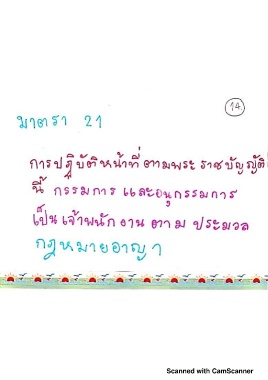 14
มาตรา 21
การปฏิบัติหน้าที่ตามพระราชบัญญัติ
นี้ กรรมการ และอนุกรรมการ
เป็นเจ้าพนักงานตาม ประมวล
กฎหมายอาญา
Scanned with CamScanner